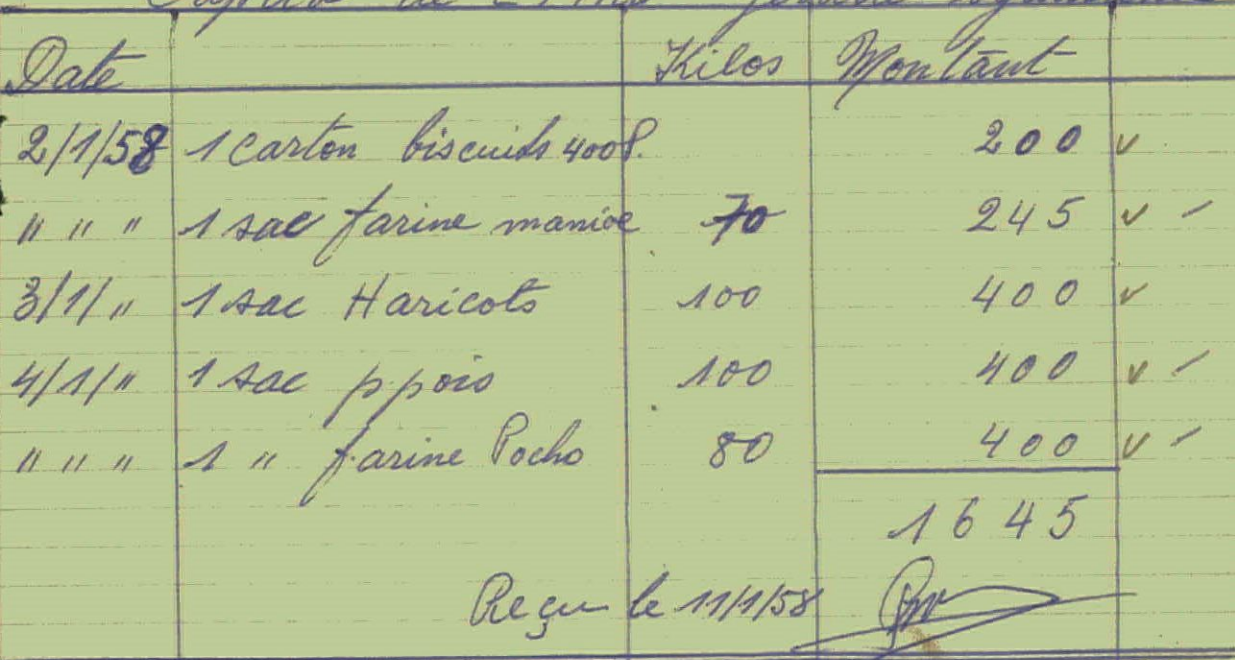 de
Date Kilos Montant
2/1/58 1 carton biscuids 400P. 200 v
" " " 1 sac farine manioc 70 245 v -
3/1/" 1 sac Haricots 100 400 v
4/1/" 1 sac ppois 100 400 v -
" " " 1 " farine Pocho 80 400 v -
1645
Reçu le 11/1/58